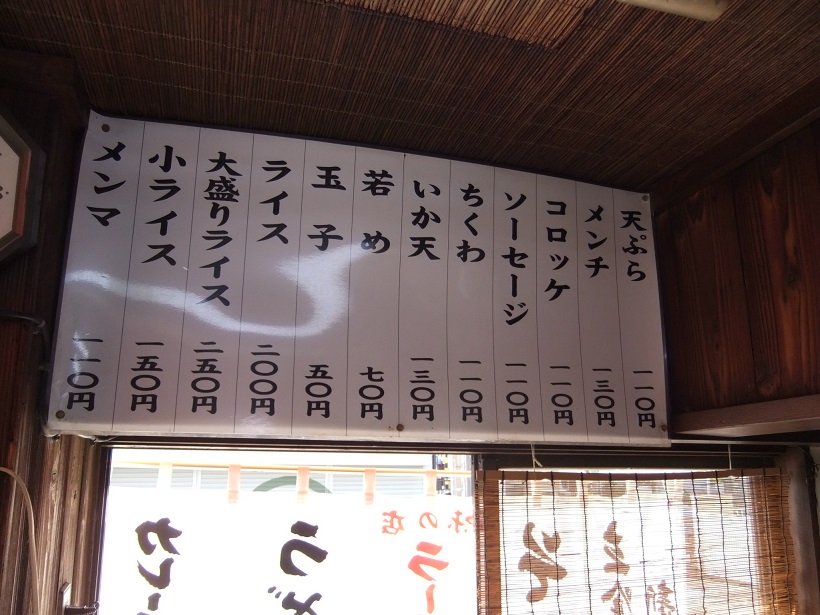 天ぷら 一一〇円
メンチ 一三〇円
コロッケ 一一〇円
ソーセージ 一一〇円
ちくわ 一一〇円
いか天 一三〇円
若め 七〇円
玉子 五〇円
ライス 二〇〇円
大盛りライス 二五〇円
小ライス 一五〇円
メンマ 一一〇円
味の店
ラー
うど
カレー